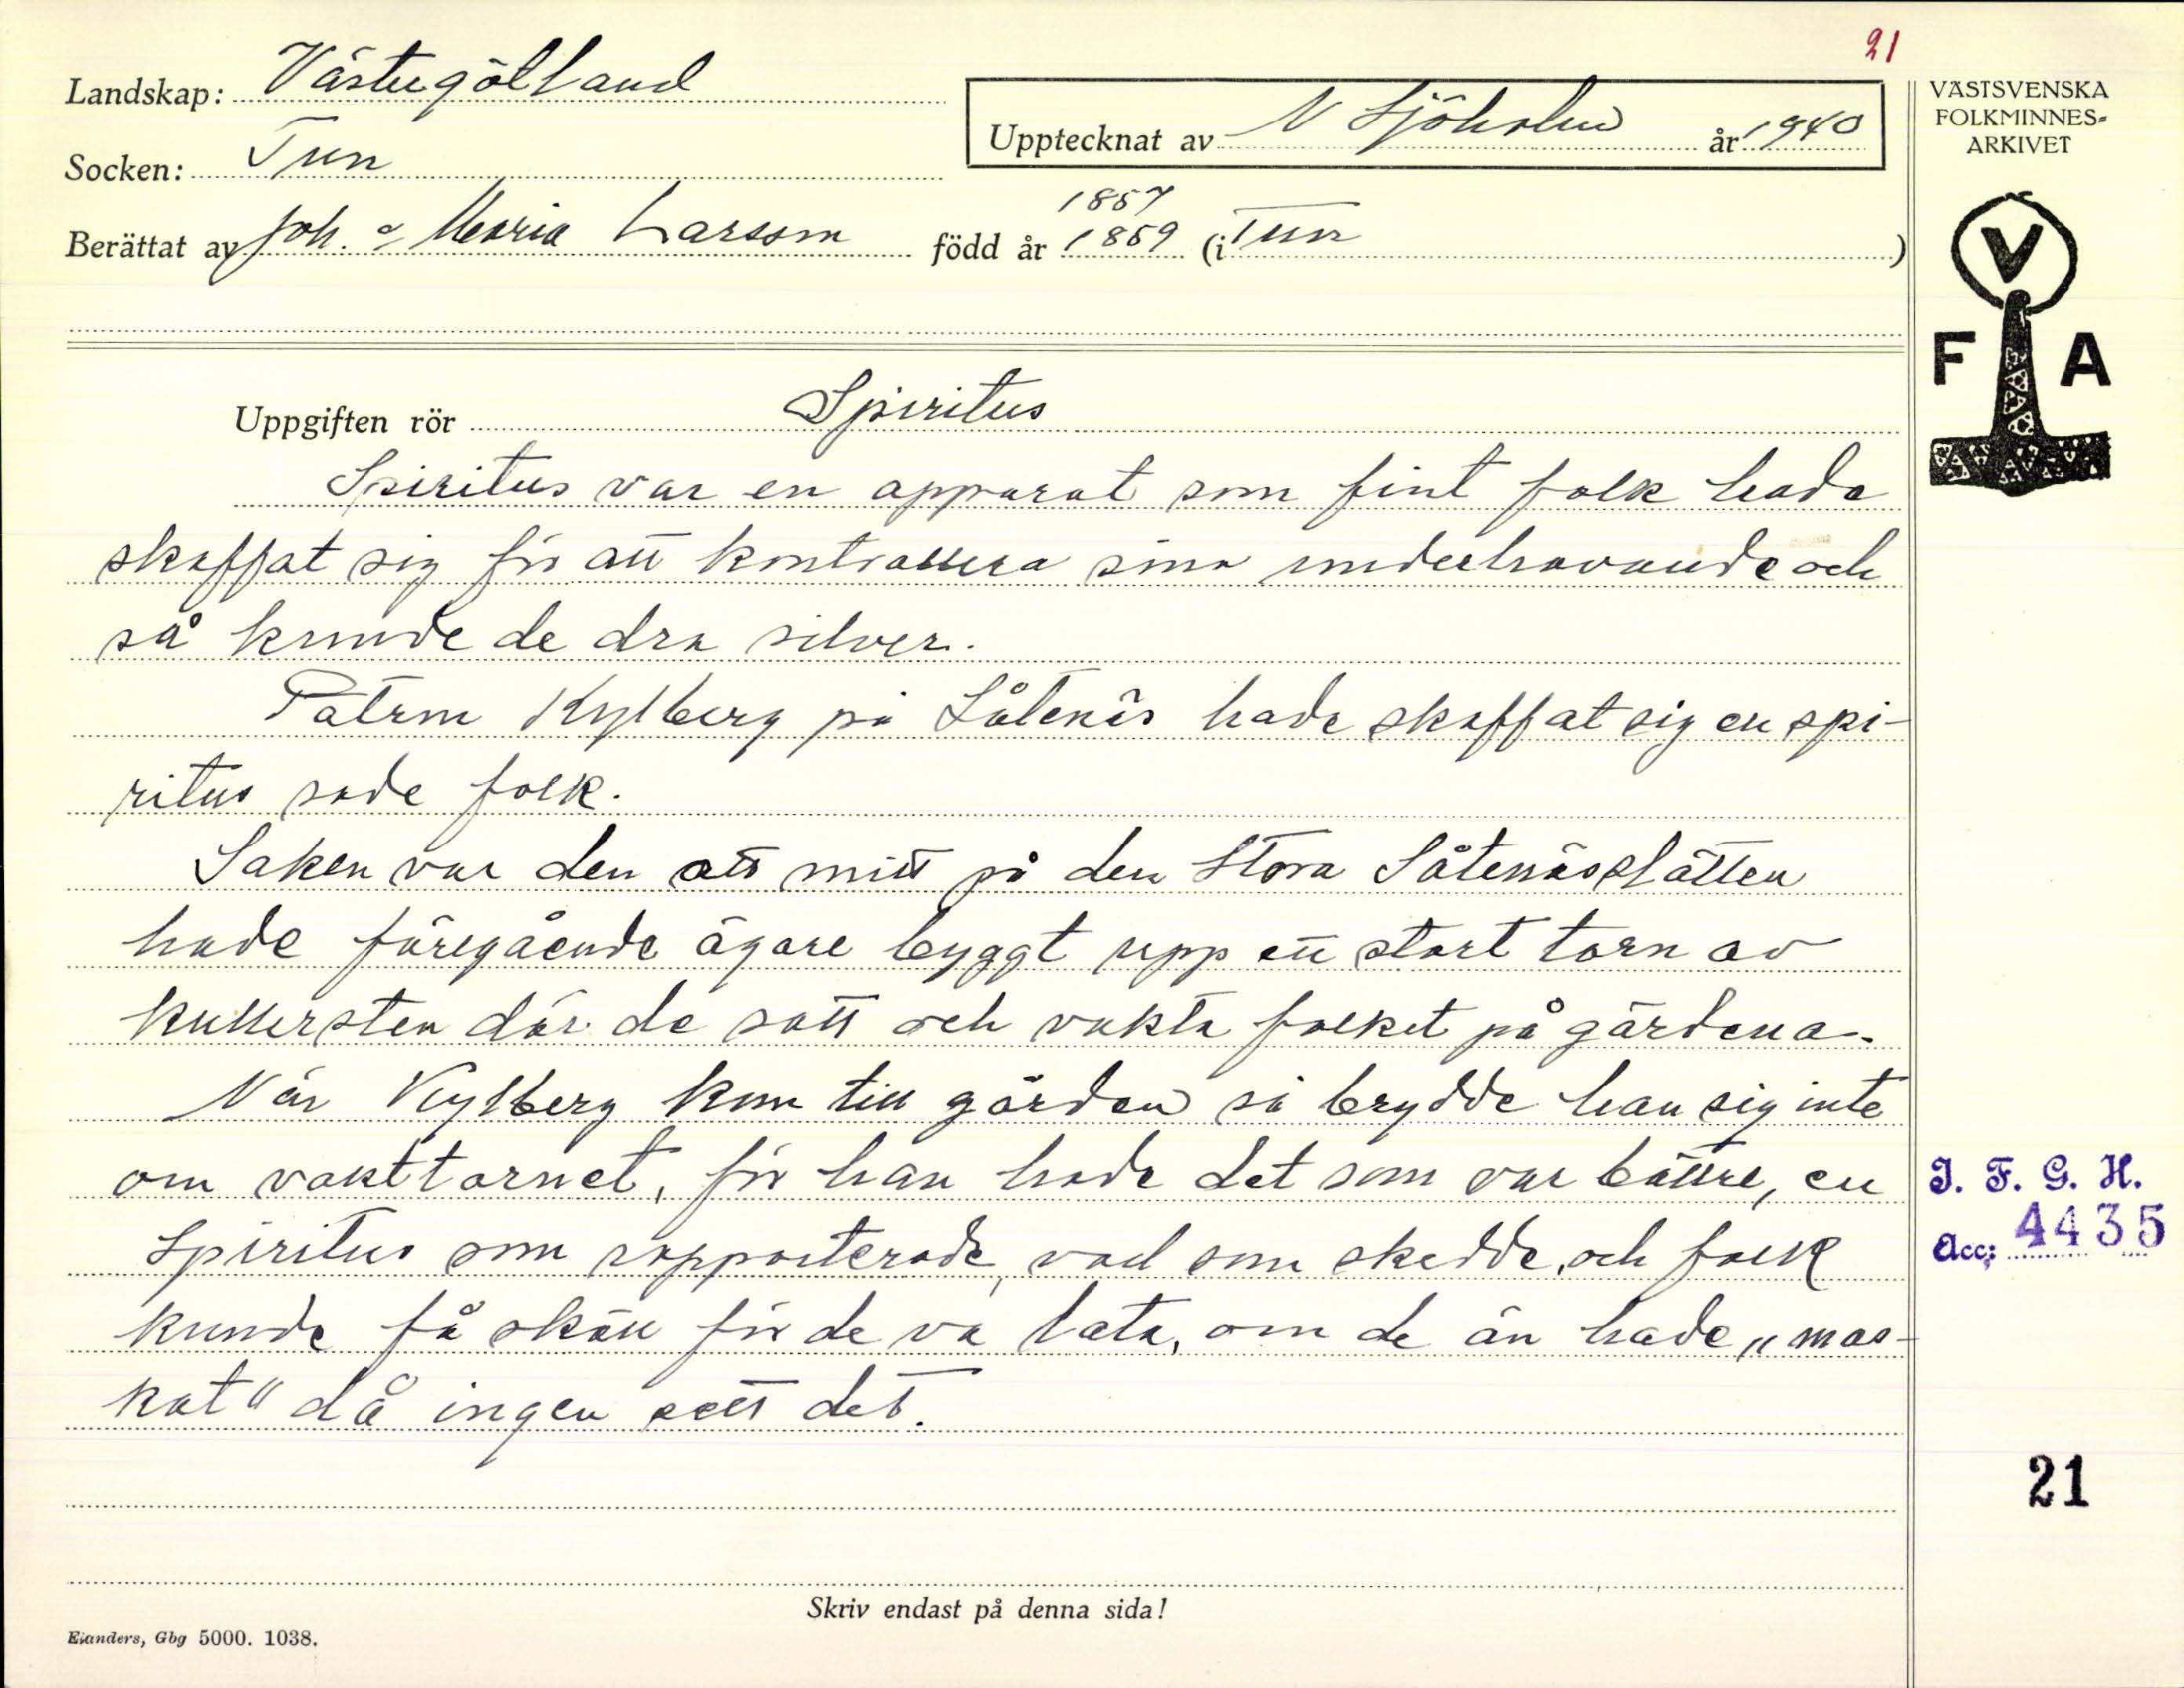 21
Landskap: Västergötland
Upptecknat av N Sjöholm år 1940
Socken: Tun
Berättat av Joh. o Maria Larsson född år 1857 1859 (i Tun)
VÄSTSVENSKA
FOLKMINNES-
ARKIVET
V
F A
Uppgiften rör Spiritus
Spiritus var en apparat som fint folk hade
skaffat sig för att kontrollera sina underhavande och
så kunde de dra silver.
Patron Kylberg på Såtenäs hade skaffat sig en spi-
ritus sade folk.
Saken var den att mitt på den stora Såtenässlätten
hade föregående ägare byggt upp ett stort torn av
kullersten där de satt och vakta folket på gärdena.
När Kylberg kom till gården så brydde han sig inte
om vakttornet, för han hade det som var bättre, en
Spiritus som rapporterade, vad som skedde, och folk
kunde få skäll för de va lata, om de än hade „mas-
kat“ då ingen sett det.
I. F. G. H.
Acc: 4435
21
Skriv endast på denna sida!
Elanders, Gbg 5000. 1038.